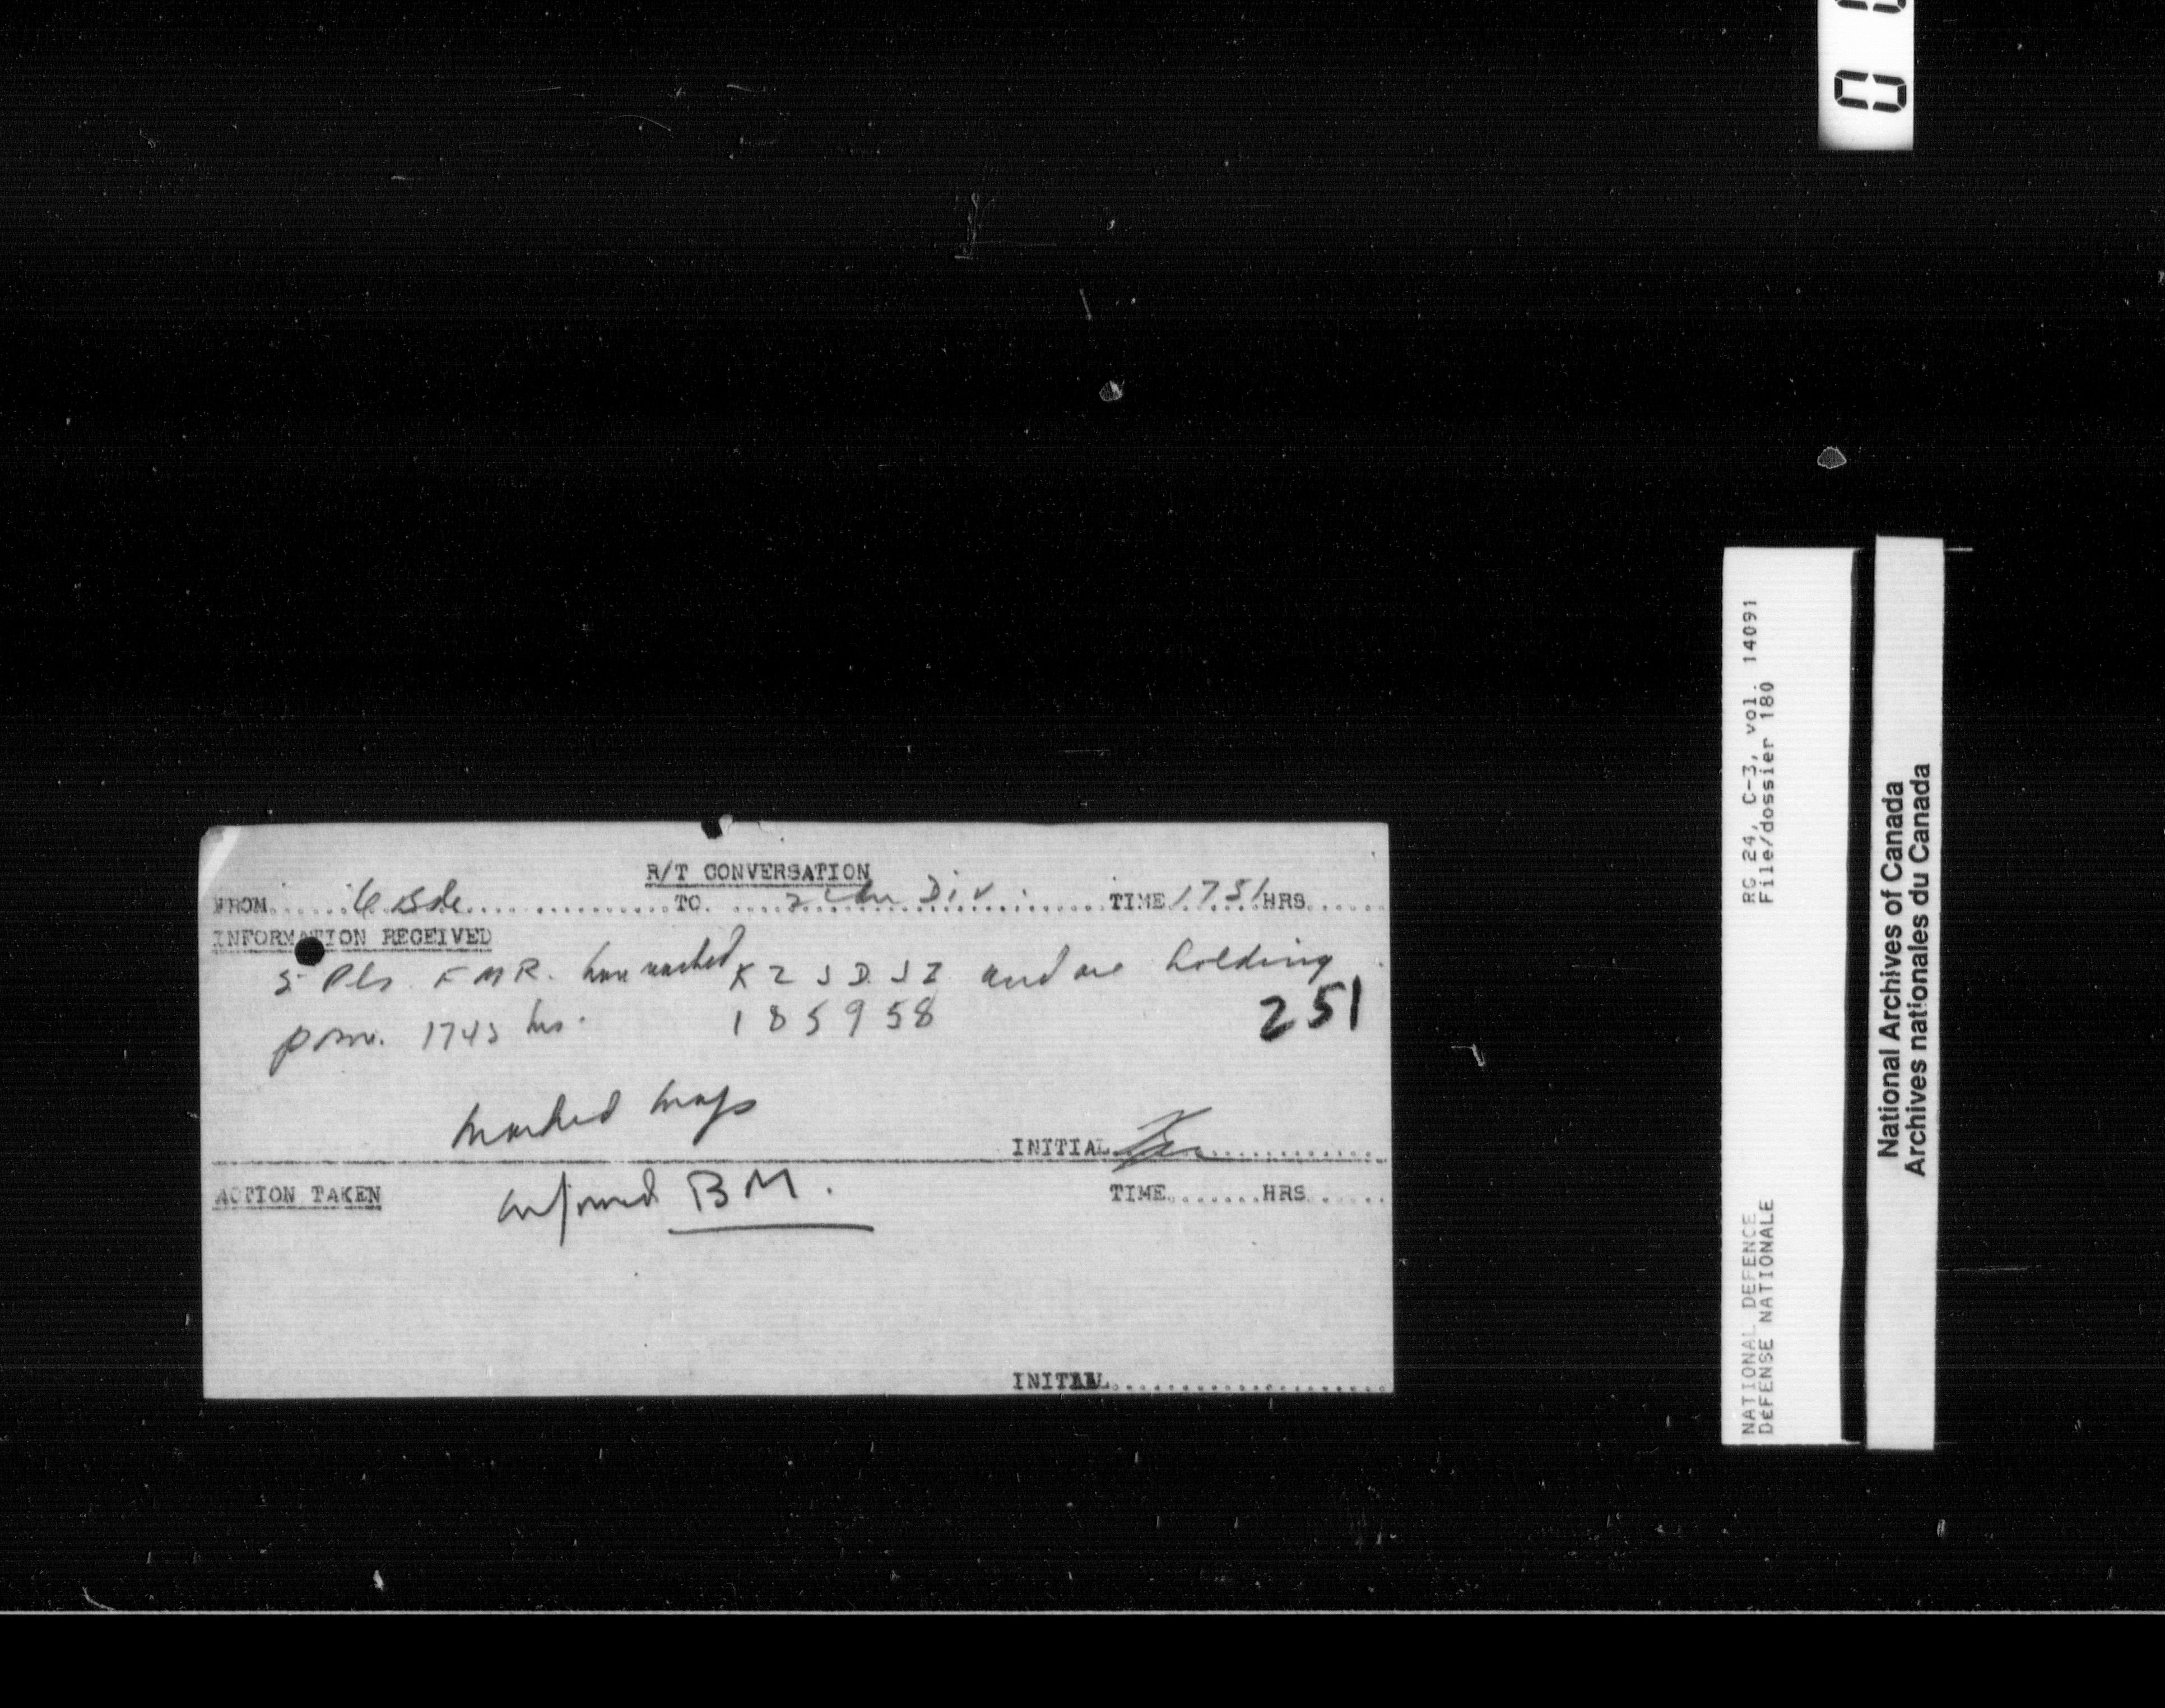 0
R/T CONVERSATION
FROM 6 Bde TO 2 Cdn Div. TIME 1751 HRS
INFORMATION RECEIVED
5 Pls F M R. have reached K Z J D J Z and are holding
posn. 1745 hrs. 185958
251
marked maps
INITIAL
ACTION TAKEN informed BM. TIME.......HRS
INITIAL
RG 24, C-3, vol. 14091
File/dossier 180
NATIONAL DEFENCE
DÉFENSE NATIONALE
National Archives of Canada
Archives nationales du Canada